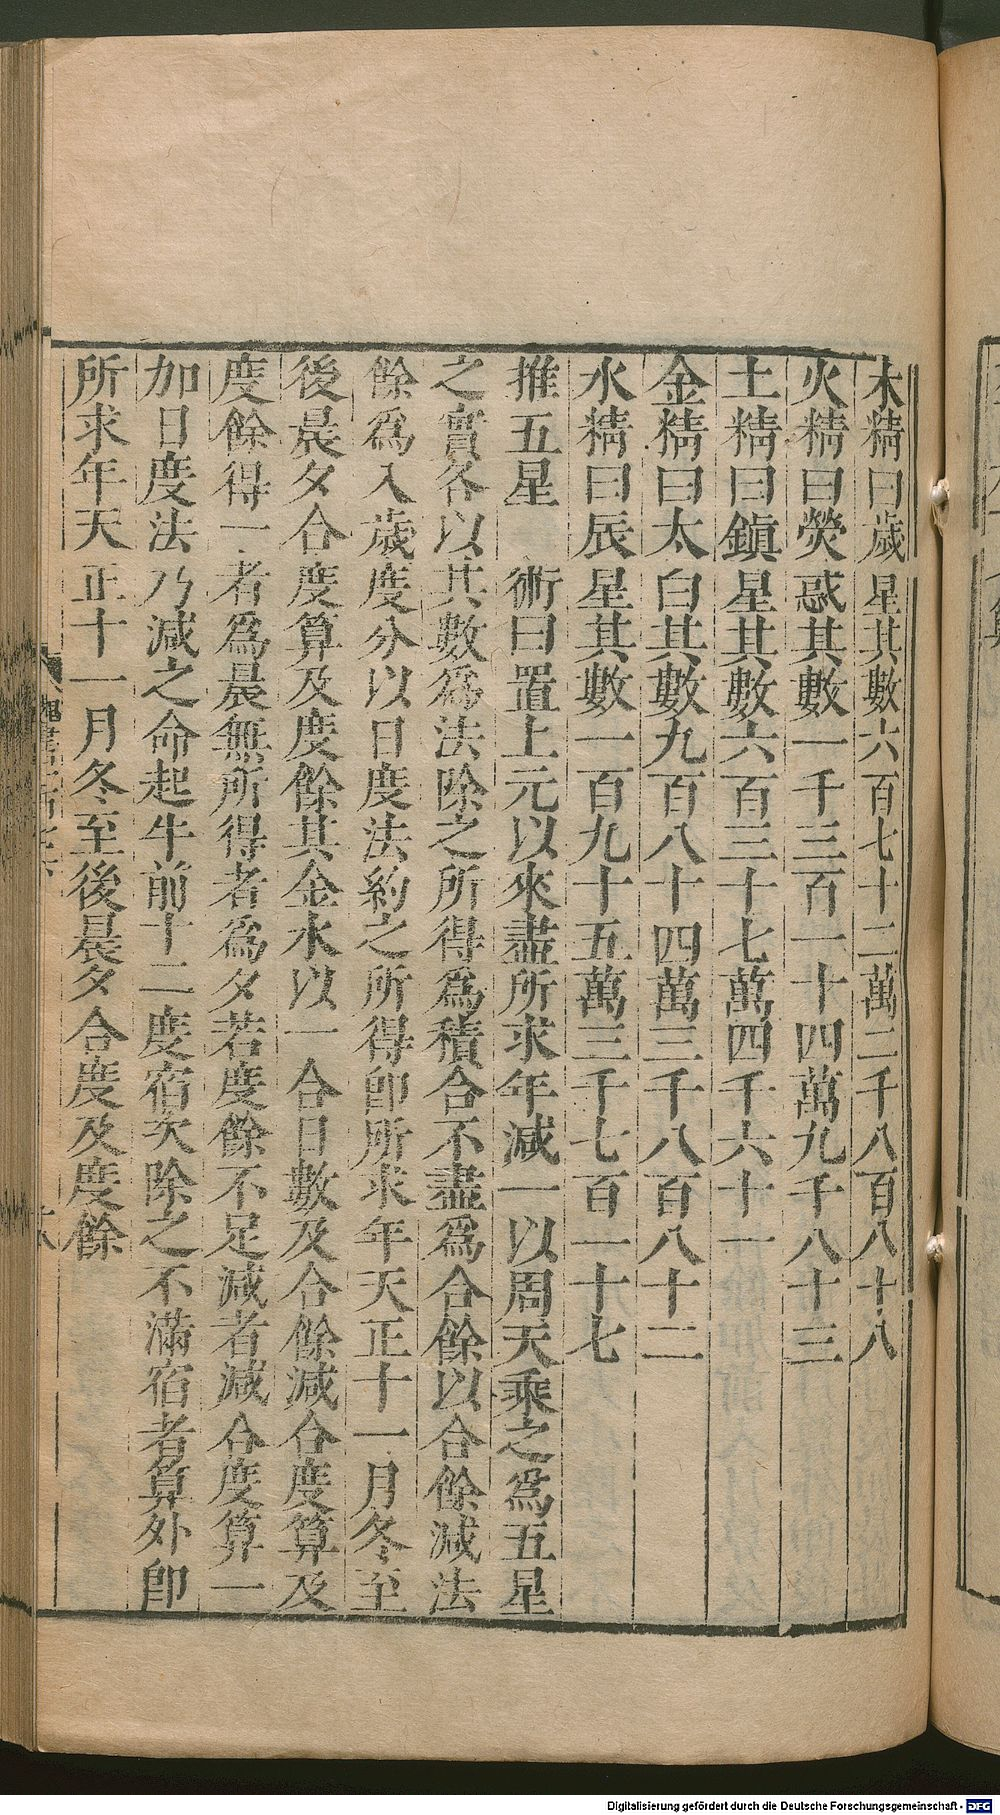 木精曰歲星其數六百七十二萬二千八百八十八
火精曰熒惑其數一千三百一十四萬九千八十三
土精曰鎮星其數六百三十七萬四千六十一
金精曰太白其數九百八十四萬三千八百八十二
水精曰辰星其數一百九十五萬三千七百一十七
推五星　術曰置上元以來盡所求年減一以周天乘之爲五星
之實各以其數爲法除之所得爲積合不盡爲合餘以合餘減法
餘爲入歲度分以日度法約之所得卽所求年天正十一月冬至
後晨夕合度算及度餘其金水以一合日數及合餘減合度算及
度餘得一者爲晨無所得者爲夕若度餘不足減者減合度算一
加日度法乃減之命起牛前十二度宿次除之不滿宿者算外卽
所求年天正十一月冬至後晨夕合度及度餘
Digitalisierung gefördert durch die Deutsche Forschungsgemeinschaft - DFG